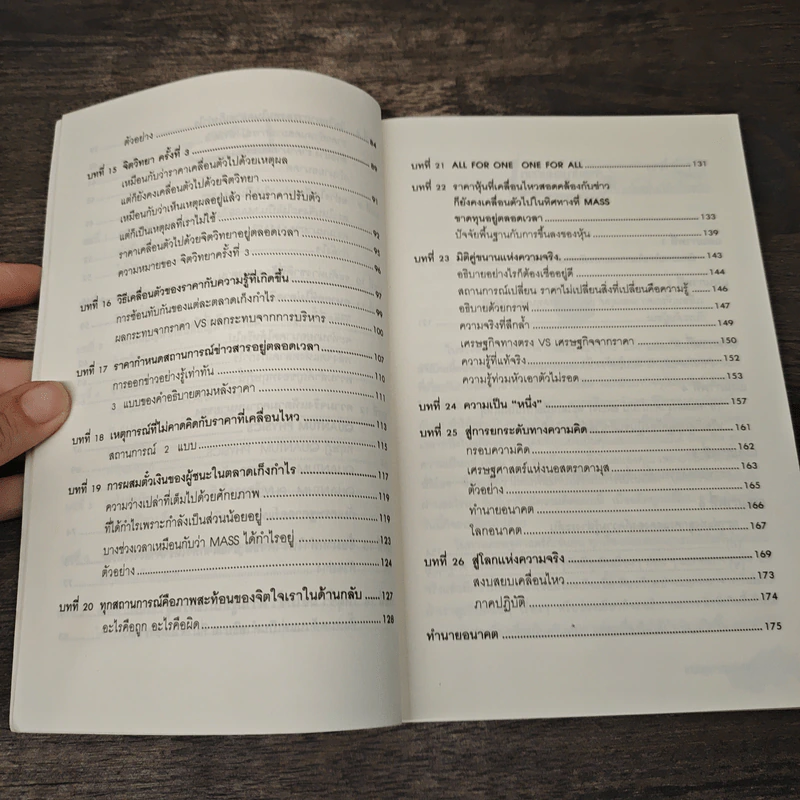 ตัวอย่าง ........ 84
บทที่ 15 จิตวิทยา ครั้งที่ 3 ........ 89
เหมือนกับว่าราคาเคลื่อนตัวไปด้วยเหตุผล
แต่ก็ยังคงเคลื่อนตัวไปด้วยจิตวิทยา ........ 91
เหมือนกับว่าเห็นเหตุผลอยู่แล้ว ก่อนราคาปรับตัว
แต่ก็เป็นเหตุผลที่เราไม่ใช้ ........ 93
ราคาเคลื่อนตัวไปด้วยจิตวิทยาอยู่ตลอดเวลา ........ 95
ความหมายของ จิตวิทยาครั้งที่ 3 ........ 96
บทที่ 16 วิธีเคลื่อนตัวของราคากับความรู้ที่เกิดขึ้น ........ 97
การซ้อนทับกันของแต่ละตลาดเก็งกำไร ........ 99
ผลกระทบจากราคา VS ผลกระทบจากการบริหาร ........ 100
บทที่ 17 ราคากำหนดสถานการณ์ข่าวสารอยู่ตลอดเวลา ........ 107
การออกข่าวอย่างรู้เท่าทัน ........ 110
3 แบบของคำอธิบายตามหลังราคา ........ 111
บทที่ 18 เหตุการณ์ที่ไม่คาดคิดกับราคาที่เคลื่อนไหว ........ 113
สถานการณ์ 2 แบบ ........ 115
บทที่ 19 การผสมตั๋วเงินของผู้ชนะในตลาดเก็งกำไร ........ 117
ความว่างเปล่าที่เต็มไปด้วยศักยภาพ ........ 119
ที่ได้กำไรเพราะกำลังเป็นส่วนน้อยอยู่ ........ 119
บางช่วงเวลาเหมือนกับว่า MASS ได้กำไรอยู่ ........ 123
ตัวอย่าง ........ 124
บทที่ 20 ทุกสถานการณ์คือภาพสะท้อนของจิตใจเราในด้านกลับ ...... 127
อะไรคือถูก อะไรคือผิด ........ 128
บทที่ 21 ALL FOR ONE ONE FOR ALL ........ 131
บทที่ 22 ราคาหุ้นที่เคลื่อนไหวสอดคล้องกับข่าว
ก็ยังคงเคลื่อนตัวไปในทิศทางที่ MASS
ขาดทุนอยู่ตลอดเวลา ........ 133
ปัจจัยพื้นฐานกับการขึ้นลงของหุ้น ........ 139
บทที่ 23 มิติคู่ขนานแห่งความจริง ........ 143
อธิบายอย่างไรก็ต้องเชื่ออยู่ดี ........ 144
สถานการณ์เปลี่ยน ราคาไม่เปลี่ยนสิ่งที่เปลี่ยนคือความรู้ ...... 146
อธิบายด้วยกราฟ ........ 147
ความจริงที่ลึกล้ำ ........ 149
เศรษฐกิจทางตรง VS เศรษฐกิจจากราคา ........ 150
ความรู้ที่แท้จริง ........ 152
ความรู้ท่วมหัวเอาตัวไม่รอด ........ 153
บทที่ 24 ความเป็น "หนึ่ง" ........ 157
บทที่ 25 สู่การยกระดับทางความคิด ........ 161
กรอบความคิด ........ 162
เศรษฐศาสตร์แห่งนอสตราดามุส ........ 163
ตัวอย่าง ........ 165
ทำนายอนาคต ........ 166
โลกอนาคต ........ 167
บทที่ 26 สู่โลกแห่งความจริง ........ 169
สงบสยบเคลื่อนไหว ........ 173
ภาคปฏิบัติ ........ 174
ทำนายอนาคต ........ 175